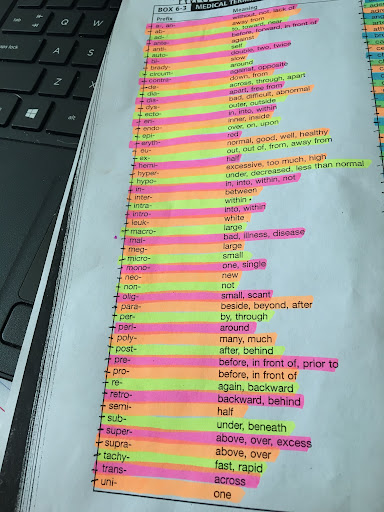 BOX 6-3 MEDICAL TERM
Prefix Meaning
a-, an- without, not, lack of
ab- away from
ad- to, toward, near
ante- before, forward, in front of
anti- against
auto- self
bi- double, two, twice
brady- slow
circum- around
contra- against, opposite
de- down, from
dia- across, through, apart
dis- apart, free from
dys- bad, difficult, abnormal
ecto- outer, outside
en- in, into, within
endo- inner, inside
epi- over, on, upon
eryth- red
eu- normal, good, well, healthy
ex- out, out of, from, away from
hemi- half
hyper- excessive, too much, high
hypo- under, decreased, less than normal
in- in, into, within, not
inter- between
intra- within
intro- into, within
leuk- white
macro- large
mal- bad, illness, disease
meg- large
micro- small
mono- one, single
neo- new
non- not
olig- small, scant
para- beside, beyond, after
per- by, through
peri- around
poly- many, much
post- after, behind
pre- before, in front of, prior to
pro- before, in front of
re- again, backward
retro- backward, behind
semi- half
sub- under, beneath
super- above, over, excess
supra- above, over
tachy- fast, rapid
trans- across
uni- one